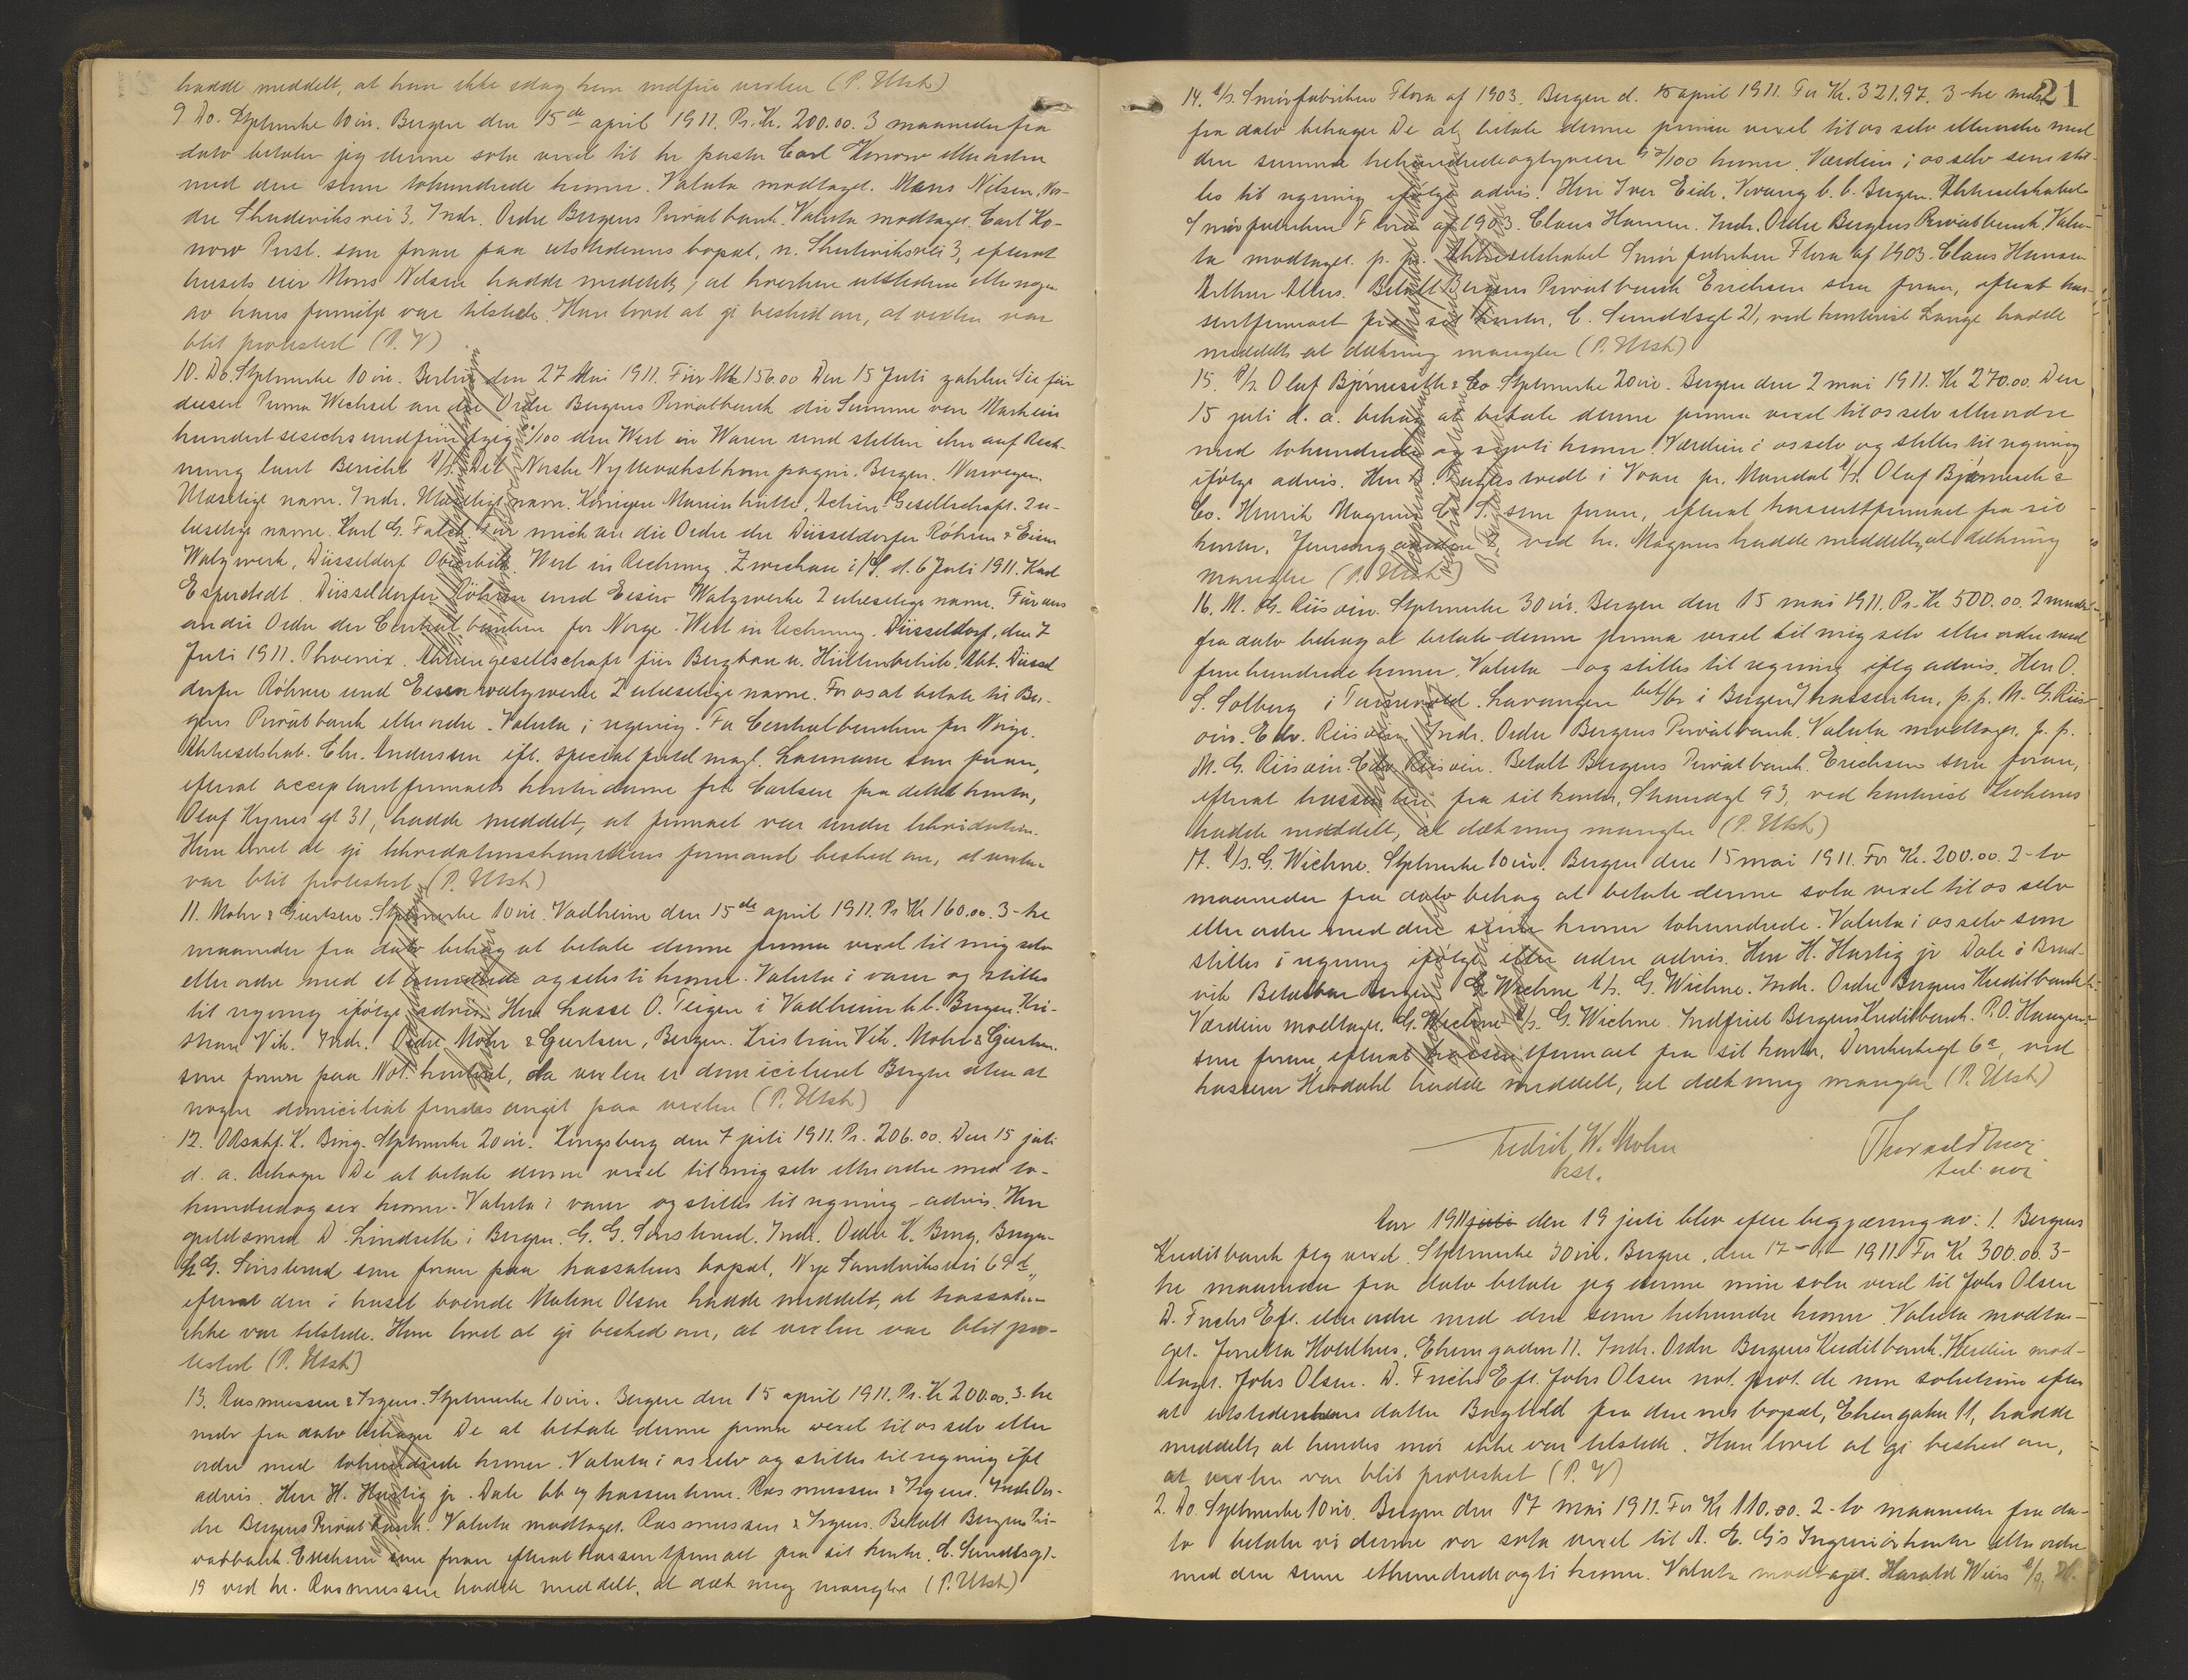 hadde meddelt, at han ikke idag kom indfri vexlen (P. Utsh)
9 Do. Stplmrke 10 öre. Bergen den 15de april 1911. Pr. Kr. 200.00. 3 maaneder fra
dato betaler jeg denne sola vexel til hr pastor Carl Konow eller ordre
med den sum tohundrede kroner. Valuta modtaget. Mons Nilsen,
3. Indr. Ordre Bergens Privatbank. Valuta modtaget. Carl Ko-
now Prest. som foran paa utstederens bopæl, n. 3, efterat
husets eier Mons Nilsen hadde meddelt, at hverken utstederen eller nogen
av hans familje var tilstede. Han lovet at gi besked om, at vexlen var
blit protestert (P. V)
10. Do. Stplmrke 10 öre. Berlin den 27 Mai 1911. Für Mk 156.00 Den 15 Juli zahlen Sie für
diesen Prima Wechsel an die Ordre Bergens Privatbank die Summe von Mark ein
hundert sechsundfünfzig /100 den Wert in Waren und stellen ihn auf Rech-
nung laut Bericht A/S. Det Norske Nyttevækstkompagni. Bergen. Norwegen.
Ulæselige navn. Indr. Ulæseligt navn. Königen Marienhütte, Actien Gesellschaft. 2 u-
læselige navne. Karl G. Falck. Für mich an die Ordre der Düsseldorfer Röhren & Eisen
Walzwerk, Düsseldorf Oberbilk. Wert in Rechnung. Zwickau i/S. d. 6 Juli 1911. Karl
Esperstedt. Düsseldorfer Röhren und Eisen Walzwerke 2 ulæselige navne. Für uns
an die Ordre der Centralbanken for Norge. Wert in Rechnung. Düsseldorf, den 7
Juli 1911. Phoenix. Aktiengesellschaft für Bergbau u. Hüttenbetrieb. Abt. Düssel
dorfer Röhren und Eisenwalzwerke 2 ulæselige navne. For os at betale til Ber-
gens Privatbank eller ordre. Valuta i regning. For Centralbanken for Norge.
Aktieselskab. Chr. Anderssen ifl. special fuldmagt. som foran,
efterat acceptantfirmaets kontordame frk Carlsen fra dettes kontor,
Olaf Kyrres gt 31, hadde meddelt, at firmaet var under likvidation.
Hun lovet at gi likvidationskomiteens formand besked om, at vexlen
var blit protestert (P. Utsh)
11. Mohr & Gjertsen. Stplmrke 10 öre. Vadheim den 15de april 1911. Pr Kr 160.00. 3-tre
maaneder fra dato behag at betale denne prima vexel til mig selv
eller ordre med et hundrede og seksti kroner. Valuta i varer og stilles
til regning ifölge advis. Herr Lasse O. Teigen i Vadheim b.b. Bergen. Kri-
stian Vik. Indr. Ordre Mohr & Gjertsen, Bergen. Kristian Vik. Mohr & Gjertsen.
som foran paa Not. kontoret, da vexlen er domicilieret Bergen uten at
nogen domiciliat findes angit paa vexlen (P. Utsh)
12. K. Bing. Stplmrke 20 öre. Kongsberg den 7 juli 1911. Pr. 206.00. Den 15 juli
d. a. behager De at betale denne vexel til mig selv eller ordre med to-
hundredeogsex kroner. Valuta i varer og stilles til regning - advis. Herr
guldsmed D. Lindseth i Bergen. G. G. Indr. Ordre K. Bing, Bergen
G. G. som foran paa trassatens bopæl, Nye Sandviksvei 69 d,
efterat den i huset boende Malene Olsen hadde meddelt, at trassaten
ikke var tilstede. Hun lovet at gi besked om, at vexlen var blit pro-
testert (P. Utsh)
13. Rasmussen & Irgens. Stplmrke 10 öre. Bergen den 15 april 1911. Pr. Kr 200.00. 3-tre
mdr fra dato behager De at betale denne prima vexel til os selv eller
ordre med tohundrede kroner. Valuta i os selv og stilles til regning ifl
advis. Herr H. Hartig jr. Dale bb og hos Rasmussen & Irgens. Indr Or-
dre Bergens Privatbank. Valuta modtaget. Rasmussen & Irgens. Betalt Bergens Pri-
vatbank. Erichsen som foran efterat trassentfirmaet fra sit kontor. C. Sundtsgt.
19 ved hr. Rasmussen hadde meddelt, at dækning mangler (P. Utsh)
21
14. A/S. Smörfabriken Flora af 1903. Bergen d. 15 april 1911. For Kr. 321.97. 3-tre mdr
fra dato behager De at betale denne prima vexel til os selv eller ordre med
den summa trehundredeogtyveen 97/100 kroner. Værdien i os selv som stil-
les til regning ifölge advis. Herr Iver Eide. b. b. Bergen. Aktieselskabet
Smörfabriken Flora af 1903. Claus Hansen. Indr. Ordre Bergens Privatbank. Valu-
ta modtaget. p. p. Aktieselskabet Smörfabriken Flora af 1903. Claus Hansen
Arthur Betalt Bergens Privatbank Erichsen som foran, efterat tras-
sentfirmaet fra sit kontor, C. Sundtsgt 21, ved kontorist Lange hadde
meddelt, at dækning mangler (P. Utsh)
15. A/S. Olaf Bjørneseth & Co. Stplmrke 20 öre. Bergen den 2 mai 1911. Kr 270.00. Den
15 juli d. a. behag at betale denne prima vexel til os selv eller ordre
med tohundrede og sytti kroner. Værdien i os selv og stilles til regning
ifölge advis. Herr i pr. Mandal A/S. Olaf Bjørneseth &
Co. Henrik Magnus som foran, efterat trassentfirmaet fra sit
kontor, ved hr. Magnus hadde meddelt, at dækning
mangler (P. Utsh)
16. M. G. Stplmrke 30 öre. Bergen den 15 mai 1911. Pr. Kr 500.00. 2 maaneder
fra dato behag at betale denne prima vexel til mig selv eller ordre med
femhundrede kroner. Valuta - og stilles til regning ifölg advis. Herr O.
S. Solberg i Lavangen bet/br i Bergen p. p. M. G.
Edv. Indr. Ordre Bergens Privatbank. Valuta modtaget. p. p.
M. G. Edv. Betalt Bergens Privatbank. Erichsen som foran,
efterat trassenten fra sit kontor, Strandgt 93, ved kontorist
hadde meddelt, at dækning mangler (P. Utsh)
17. A/S. G. Wichne. Stplmrke 10 öre. Bergen den 15 mai 1911. For Kr. 200.00. 2-to
maaneder fra dato behag at betale denne sola vexel til os selv
eller ordre med den sum kroner tohundrede. Valuta i os selv som
stilles i regning ifölge eller uden advis. Herr H. Hartig jr Dale i Brud-
vik Betalbar Bergen. G. Wichne A/S. G. Wichne. Indr. Ordre Bergens Kreditbank
Værdien modtaget. G. Wichne A/S. G. Wichne. Indfriet Bergens Kreditbank. P. O. Haugen
som foran, efterat trassentfirmaet fra sit kontor, Domkirkegt 6a, ved
kasserer hadde meddelt, at dækning mangler (P. Utsh)
Fredrik W. Mohn
kst.
Aar 1911 juli den 19 juli blev efter begjæring av: 1. Bergens
Kreditbank flg vexel. Stplmrke 30 öre. Bergen, den 17-4- 1911. For Kr 300.00. 3-
tre maaneder fra dato betaler jeg denne min sola vexel til Johs Olsen
D. Fuchs Eft. eller ordre med den sum trehundre kroner. Valuta modta-
get. Holdhus. Ehrengaden 11. Indr. Ordre Bergens Kreditbank. Verdien mod-
taget. Johs Olsen. D. Fuchs Eft. Johs Olsen not. prot. de non solutione efter
at utstederskens datter Bughild fra dennes bopæl, Ehrengaten 11, hadde
meddelt, at hendes mor ikke var tilstede. Hun lovet at gi besked om,
at vexlen var blit protestert (P. V)
2. Do. Stplmrke 10 öre. Bergen den 17 mai 1911. For Kr 110.00. 2-to maaneder fra da-
to betaler vi denne vor sola vexel til A. E. G's Ingeniörkontor eller ordre
med den sum ethundredeogti kroner. Valuta modtaget. Harald Wiers A/S,